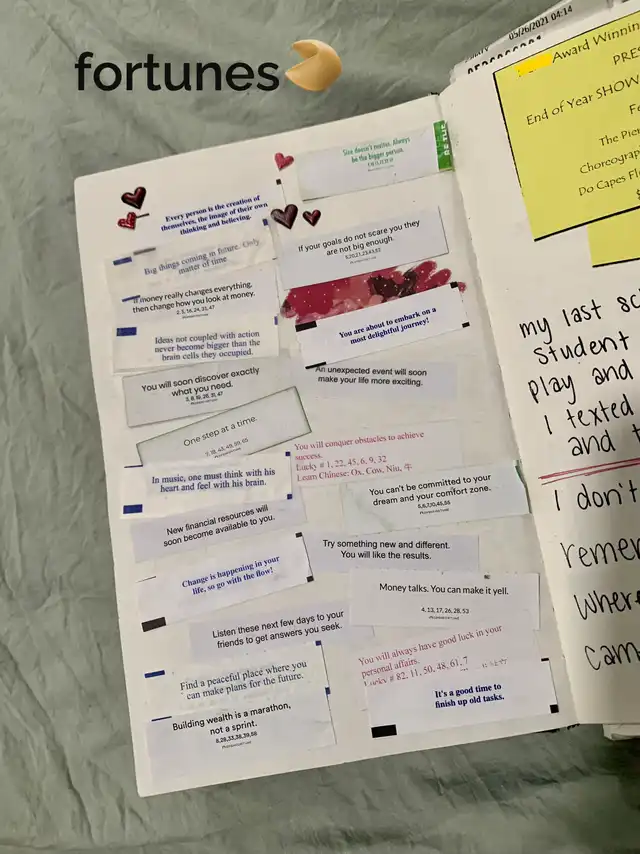 fortunes
05/26/2021 04:14
Every person is the creation of
themselves, the image of their own
thinking and believing.
Big things coming in future. Only
matter of time
If money really changes everything,
then change how you look at money.
2, 5, 16, 24, 31, 47
Ideas not coupled with action
never become bigger than the
brain cells they occupied.
You will soon discover exactly
what you need.
3, 8, 19, 26, 31, 47
One step at a time.
7, 18, 45, 49, 59, 65
In music, one must think with his
heart and feel with his brain.
New financial resources will
soon become available to you.
Change is happening in your
life, so go with the flow!
Listen these next few days to your
friends to get answers you seek.
Find a peaceful place where you
can make plans for the future.
Building wealth is a marathon,
not a sprint.
Size doesn't matter. Always
be the bigger person.
If your goals do not scare you they
are not big enough.
You are about to embark on a
most delightful journey!
An unexpected event will soon
make your life more exciting.
You will conquer obstacles to achieve
success.
Lucky # 1, 22, 45, 6, 9, 32
Learn Chinese: Ox, Cow, Niu, 牛
You can't be committed to your
dream and your comfort zone.
Try something new and different.
You will like the results.
Money talks. You can make it yell.
4, 13, 17, 26, 28, 53
You will always have good luck in your
personal affairs.
Lucky # 82, 11, 50, 48, 61, 7
It's a good time to
finish up old tasks.
Award Winnin
PRES
End of Year SHOW
Fe
The Pier
Choreograph
Do Capes Fl
my last sc
student
play and
I texted
and t
I don't
remem
where
cam